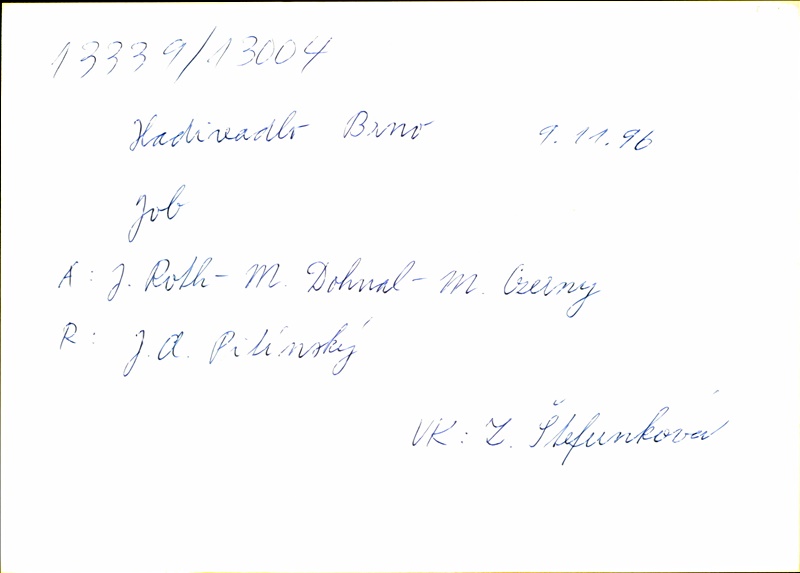 13339/13004
Hadivadlo Brno 9.11.96
Job
A: J. Roth - M. Dohnal - M. Czerny
R: J. A. Pitínský
VK: Z. Štefunková